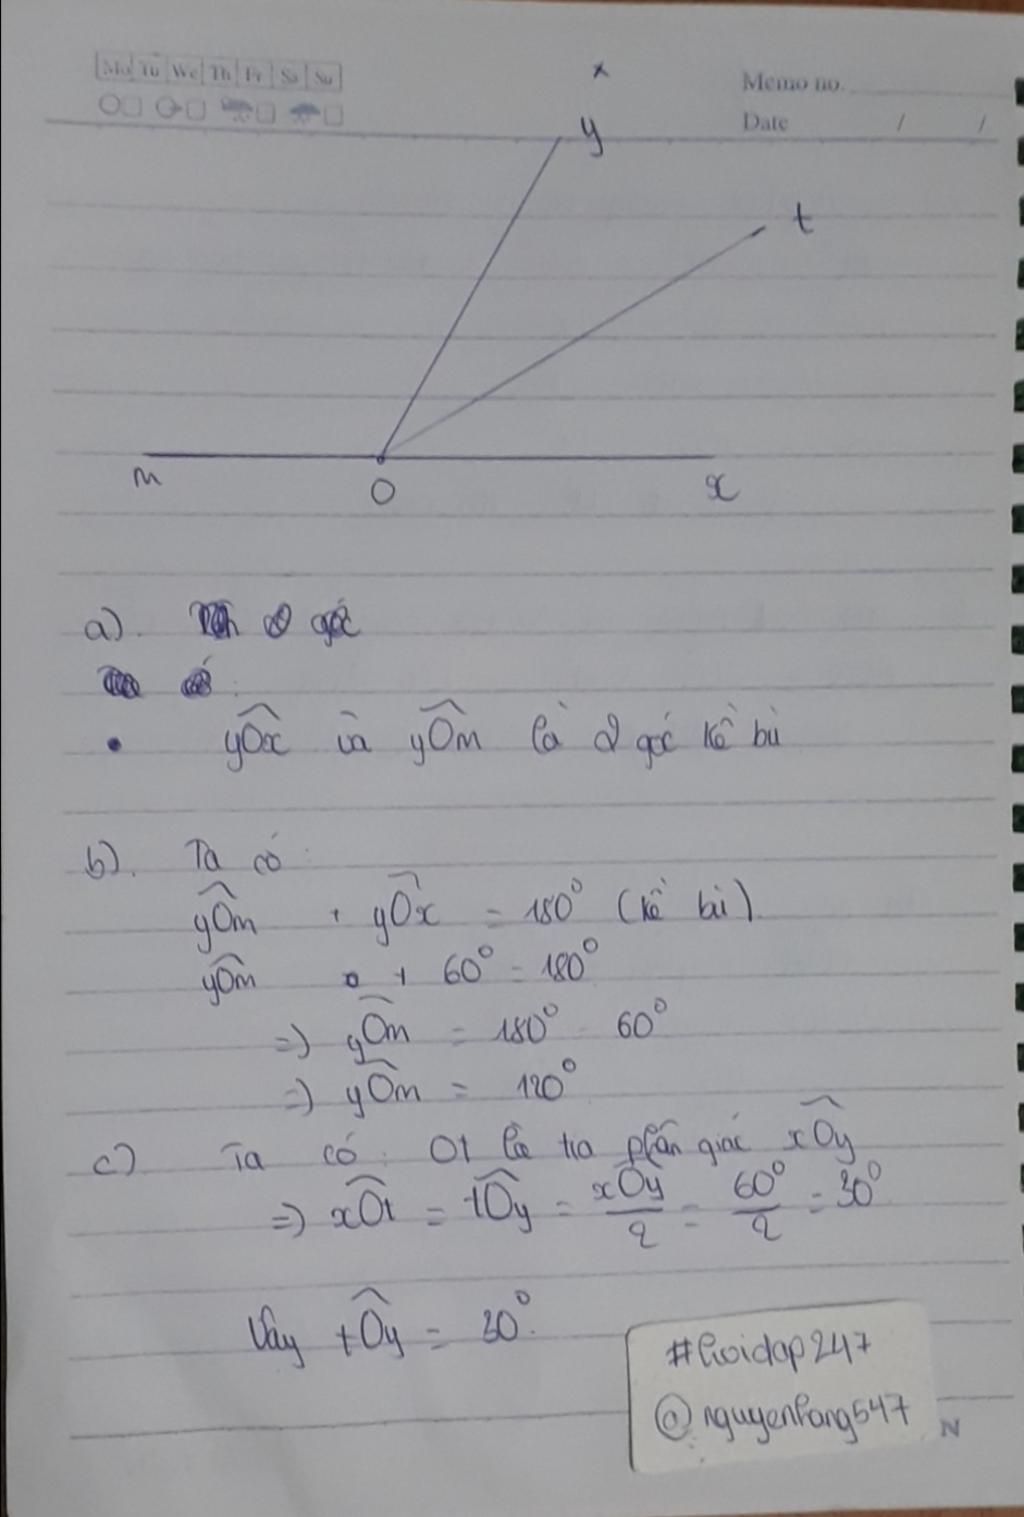 Mo Tu We Th Fr Sa Su
Memo no.
Date / /
x
y
t
m
O
x
a). góc
• yÔx và yÔm là 2 góc kề bù
b). Ta có :
yÔm + yÔx = 180° (kề bù)
yÔm + 60° = 180°
=) yÔm = 180° 60°
=) yÔm = 120°
c) Ta có : Ot là tia phân giác xÔy
=) xÔt = tÔy = xÔy/2 = 60°/2 = 30°
Vậy tÔy = 30°.
#hoidap247
@nguyenhang547
N